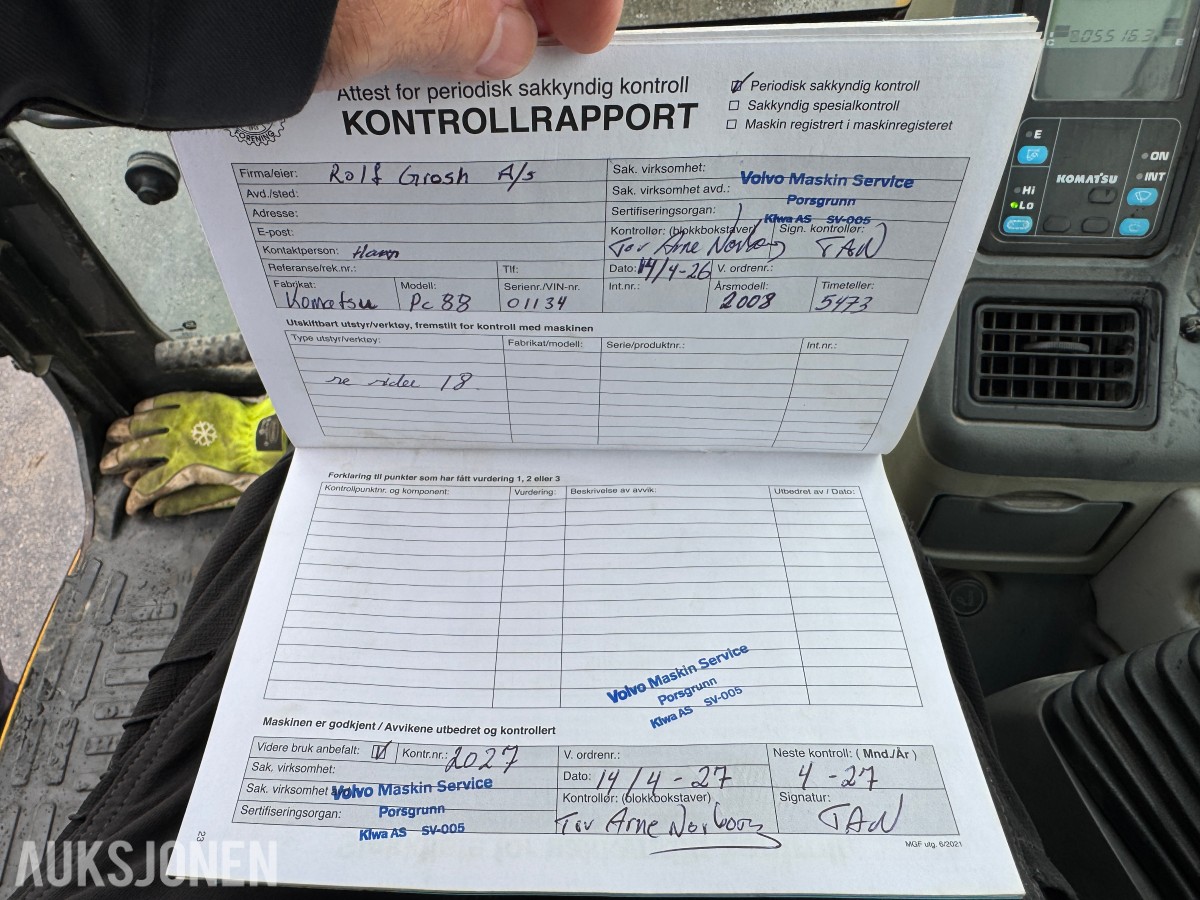 Attest for periodisk sakkyndig kontroll
KONTROLLRAPPORT
FORENING
Periodisk sakkyndig kontroll
Sakkyndig spesialkontroll
Maskin registrert i maskinregisteret
Firma/eier: Rolf Grosh A/s
Avd./sted:
Adresse:
E-post:
Kontaktperson: Ham
Referanse/rek.nr.: Tlf:
Sak. virksomhet: Volvo Maskin Service
Sak. virksomhet avd.: Porsgrunn
Sertifiseringsorgan: Kiwa AS SV-005
Kontrollør: (blokkbokstaver) Sign. kontrollør:
Tor Arne TAN
Dato: 14/4-26 V. ordrenr.:
Fabrikat: Modell: Serienr./VIN-nr. Int.nr.: Årsmodell: Timeteller:
Komatsu Pc 88 01134 2008 5473
Utskiftbart utstyr/verktøy, fremstilt for kontroll med maskinen
Type utstyr/verktøy: Fabrikat/modell: Serie/produktnr.: Int.nr.:
18
Forklaring til punkter som har fått vurdering 1, 2 eller 3
Kontrollpunktnr. og komponent: Vurdering: Beskrivelse av avvik: Utbedret av / Dato:
Volvo Maskin Service
Porsgrunn
Kiwa AS SV-005
Maskinen er godkjent / Avvikene utbedret og kontrollert
Videre bruk anbefalt: Kontr.nr.: 2027
Sak. virksomhet:
Sak. virksomhet Volvo Maskin Service
Sertifiseringsorgan: Porsgrunn
Kiwa AS SV-005
V. ordrenr.:
Dato: 14/4-27
Kontrollør: (blokkbokstaver)
Tor Arne
Neste kontroll: (Mnd./År)
4-27
Signatur:
TAN
23
MGF utg. 6/2021
05516.3
E
ON
INT
KOMATSU
Hi
Lo
AUKSJONEN